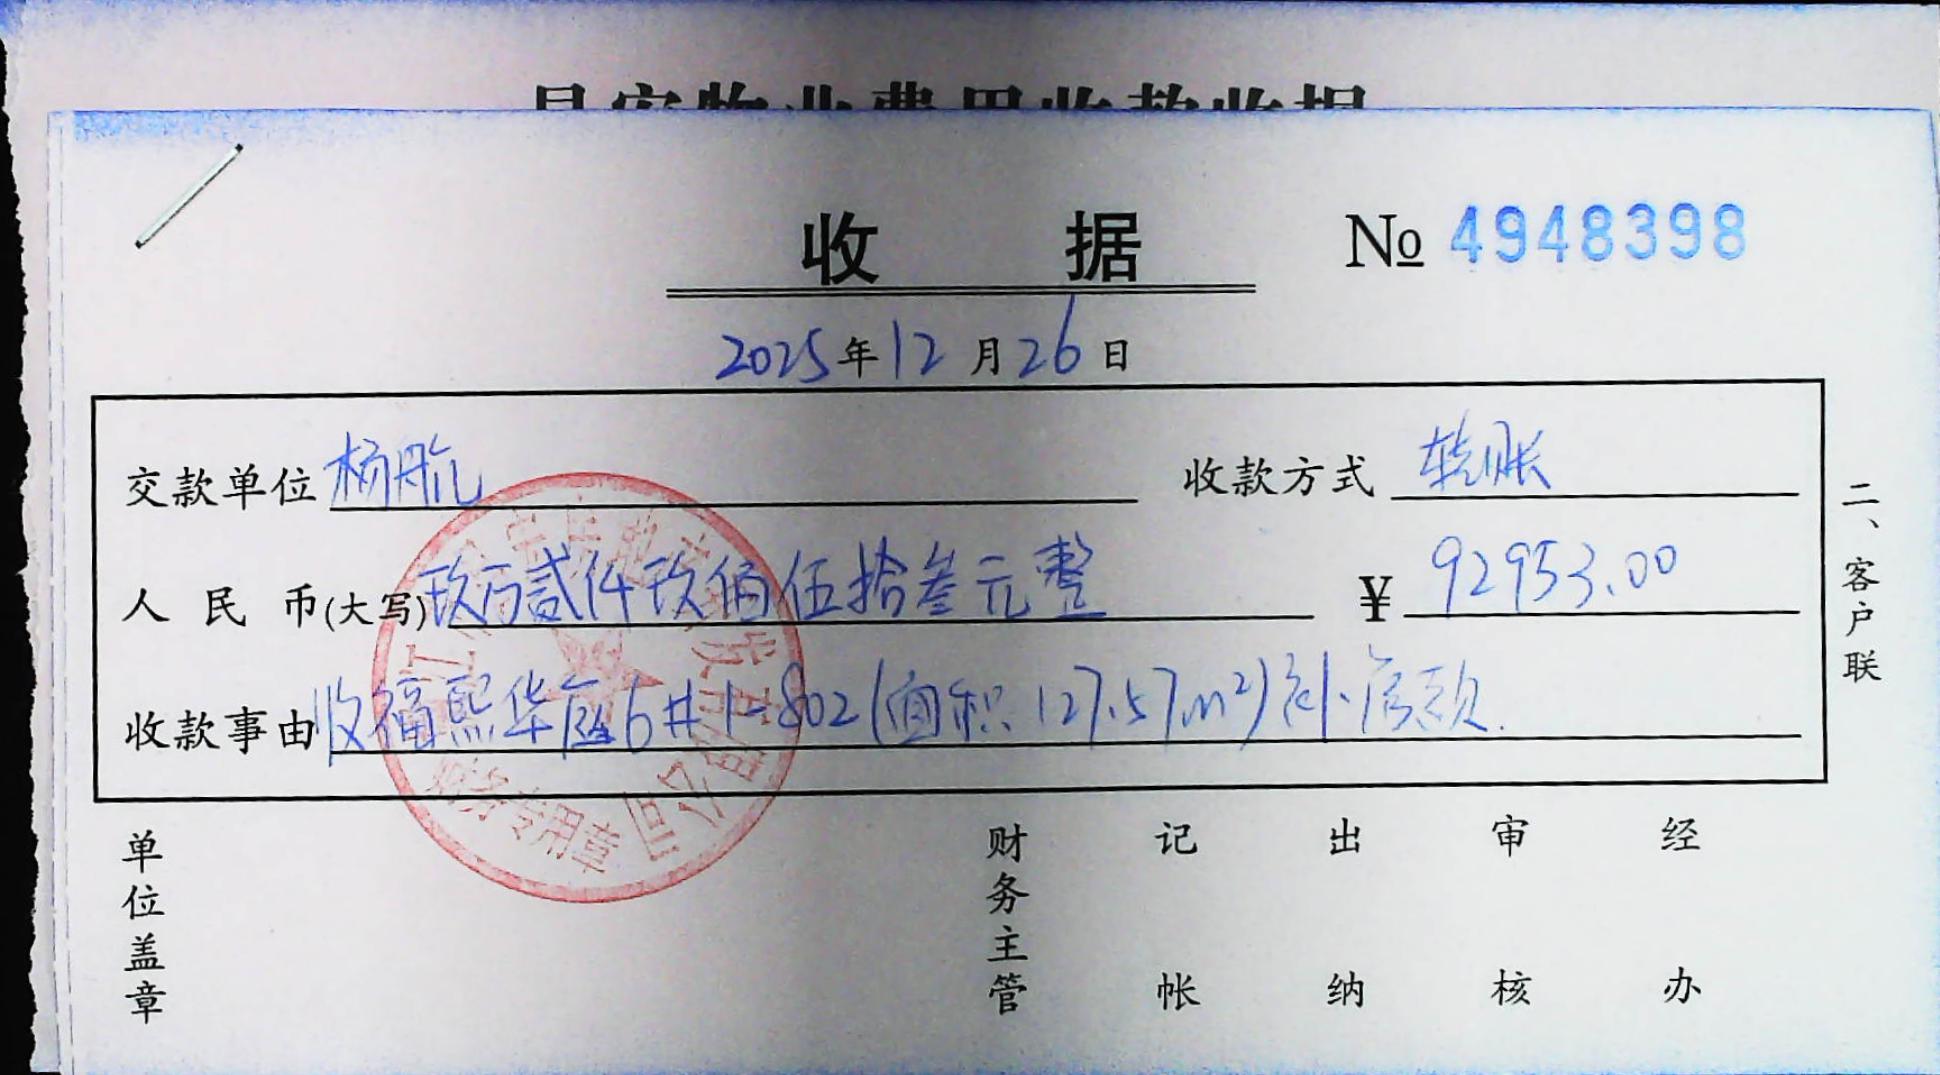 物业费用收款收据
收 据 № 4948398
2025年12月26日
交款单位 杨航 收款方式 转账
人民币(大写) 玖万贰仟玖佰伍拾叁元整 ¥ 92953.00
收款事由 收福熙华庭6#1-802(面积127.57m²)补房款.
二、客户联
财务专用章
单位盖章 财务主管 记帐 出纳 审核 经办